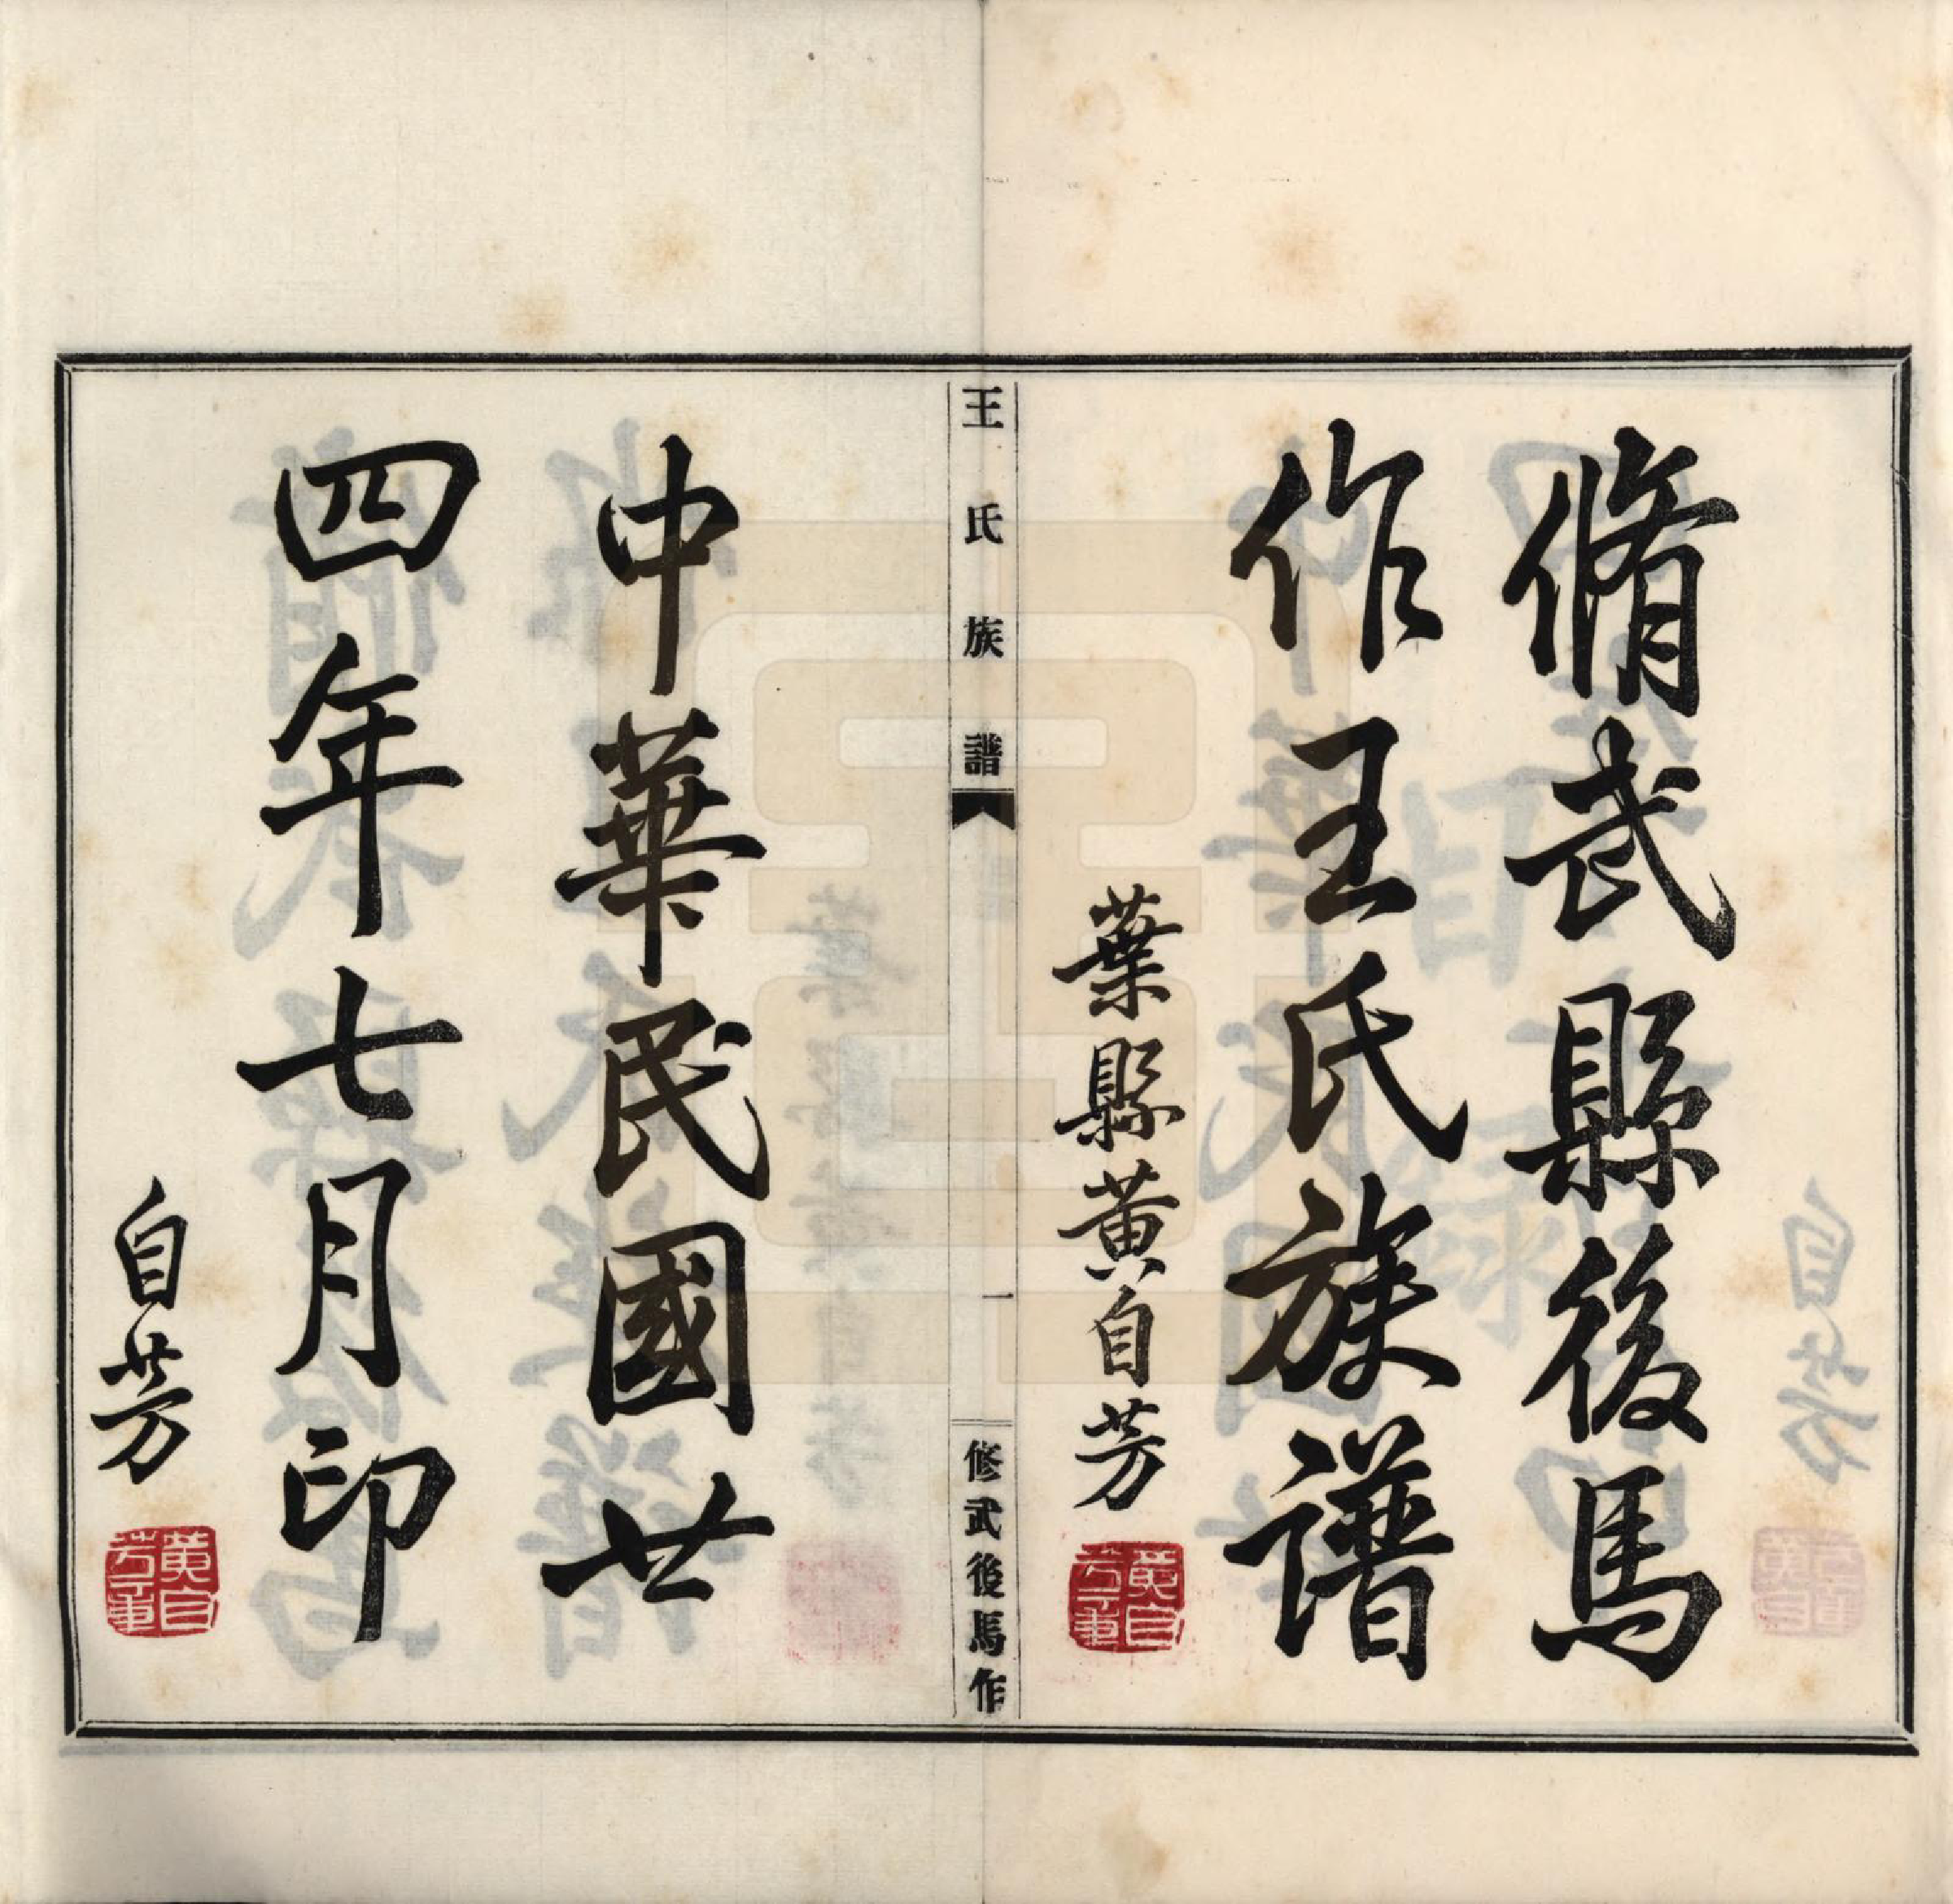 脩武縣後馬
作王氏族譜
葉縣黄自芳
王氏族譜
一
修武後馬作
中華民國廿
四年七月印
自芳